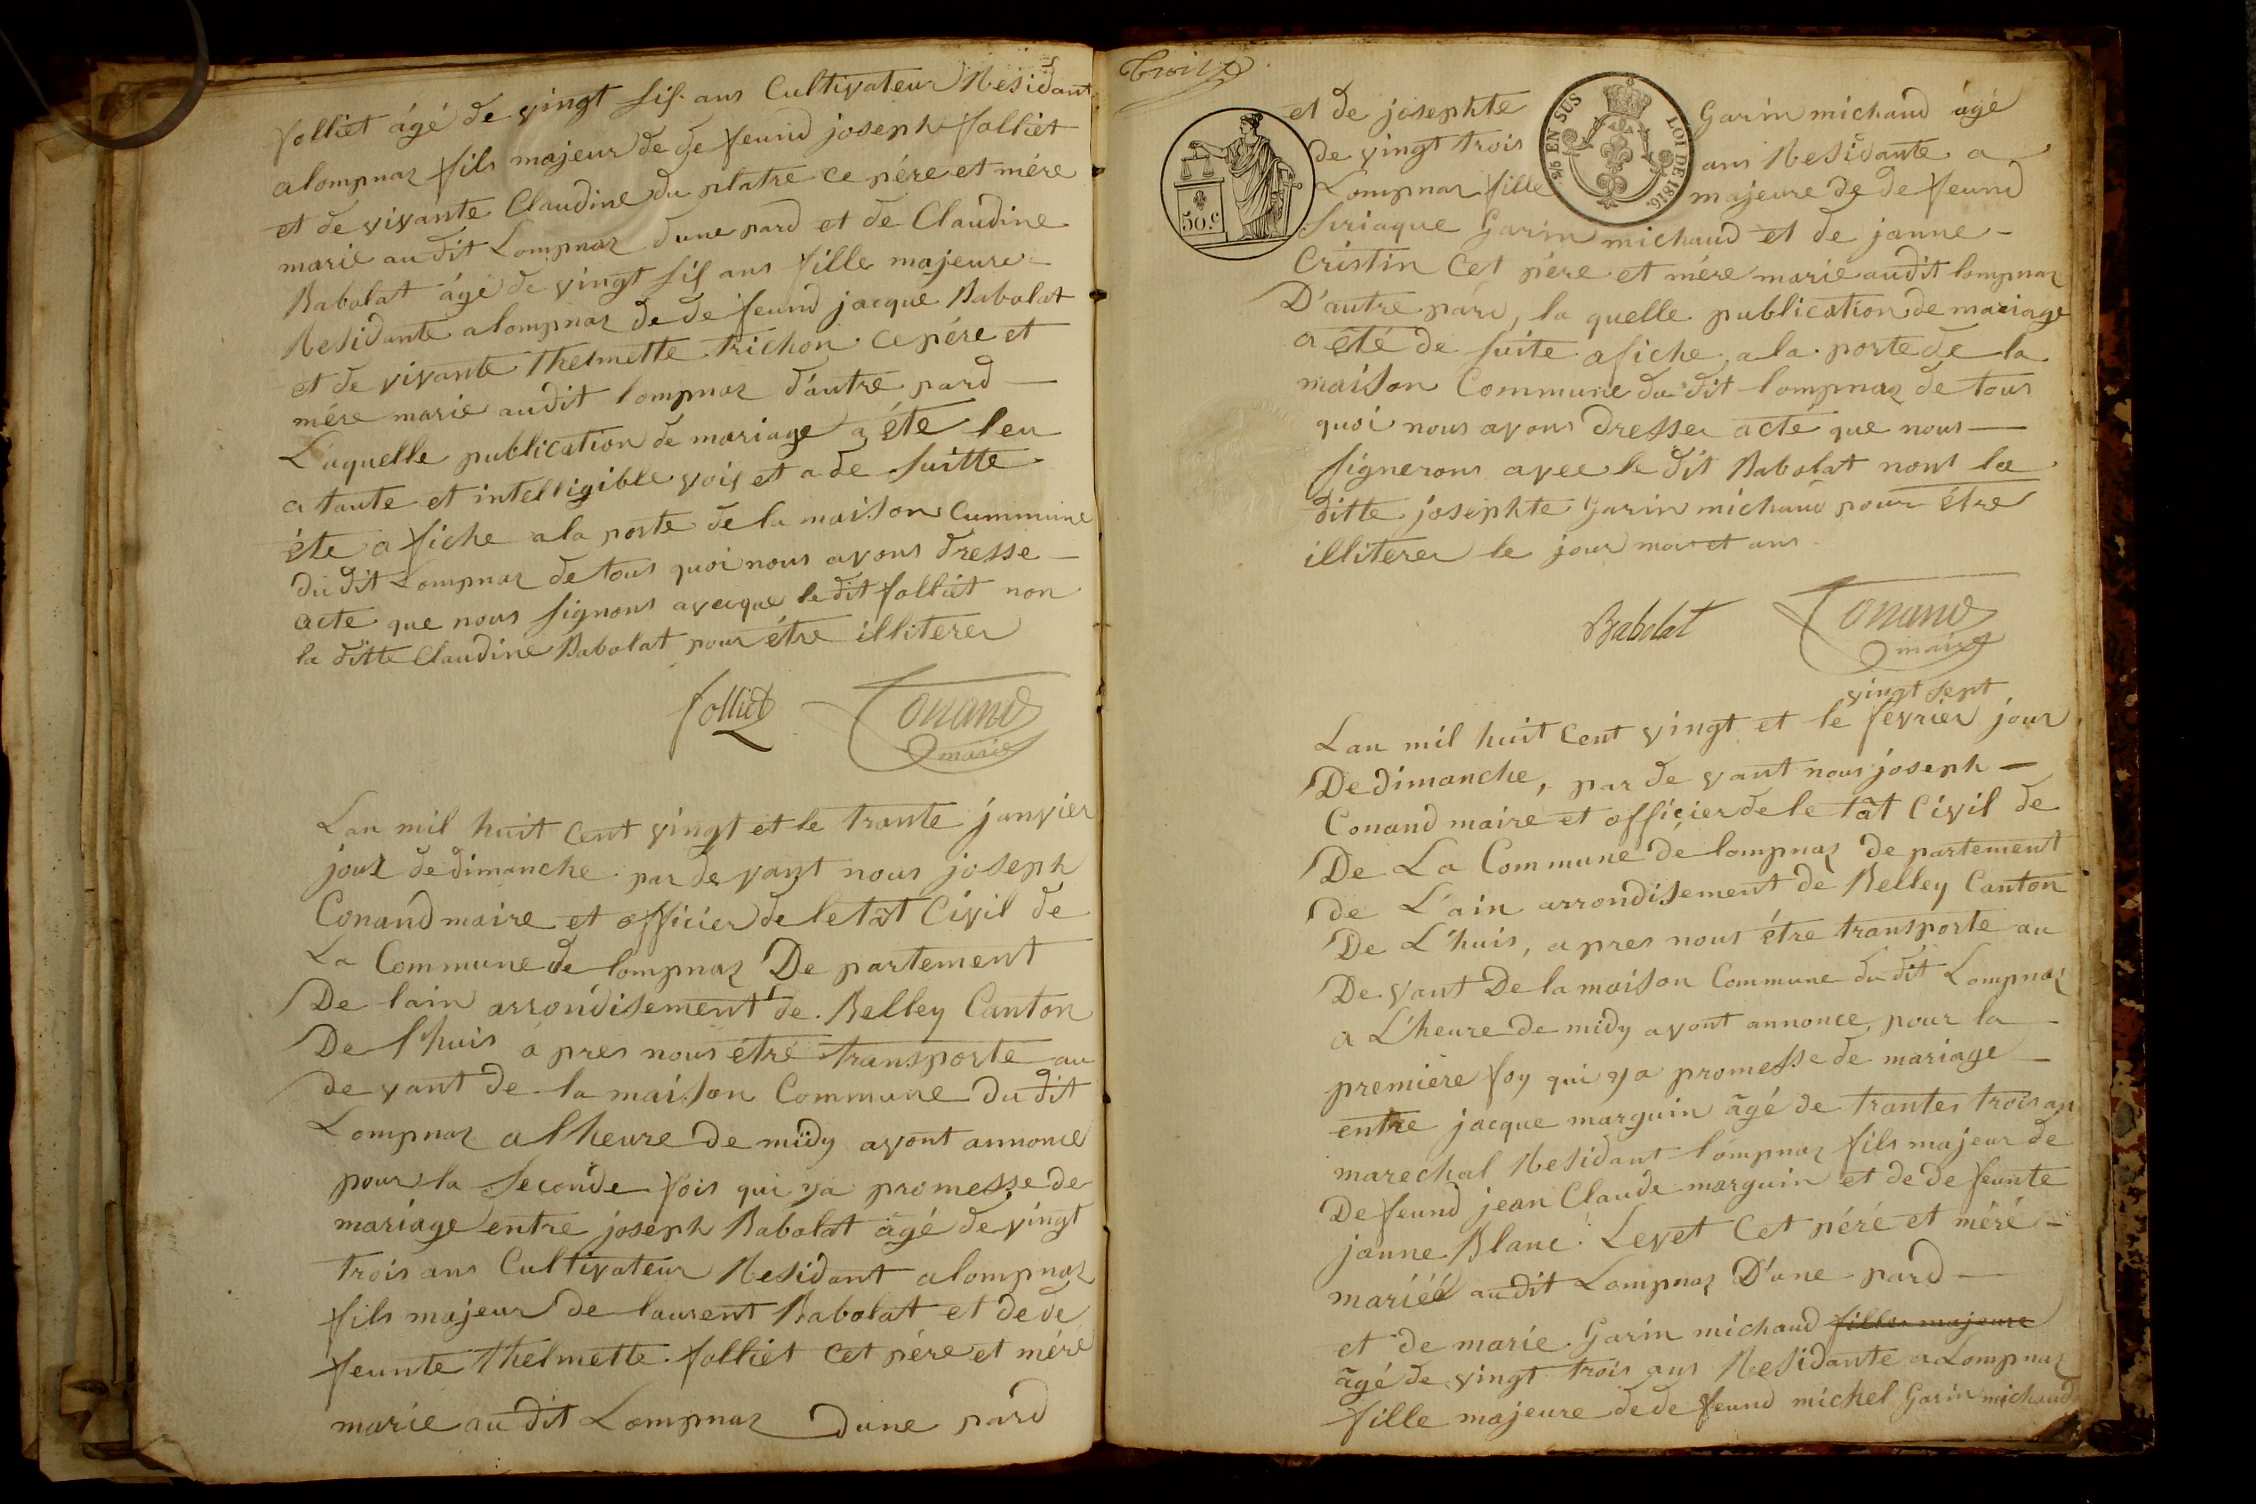 folliet ágé de vingt sis ans Cultivateur Residant
alompnaz fils majeur de de feund joseph folliet
et de vivante Claudine du platre ce pére et mére
marie audit Lompnaz dune pard et de Claudine
Babolat ágé de vingt sis ans fille majeure
Residante alompnaz de de feund jacque Babolat
et de vivante thelmette trichon ce pére et
mére marie audit lompnaz d'autre pard
Laquelle publication de mariage a éte leu
a taute et intelligible vois et a de suitte
éte afiche ala porte de la maison Cummune
du dit Lompnaz de tous quoi nous avons dresse
acte que nous signons avecque ledit folliet non
la ditte Claudine Babolat pour étre illiterer
folliet Conand
maire
Lan mil huit Cent vingt et le trante janvier
jour de dimanche par de vant nous joseph
Conand maire et officier de letât Civil de
La Commune de lompnaz De partement
De lain arrondisement de Belley Canton
De l'huis apres nous étre transporte au
de vant de la maison Commune du dit
Lompnaz alheure de midy avont annonce
pour la seconde fois qui ya promesse de
mariage entre joseph Babolat ágé de vingt
trois ans Cultivateur Residant alompnaz
fils majeur de laurent Babolat et de de
feunte thelmette folliet cet pére et mére
marie au dit Lompnaz Dune pard
Troix
et de josephte Garin michaud ágé
de vingt trois ans Residante a
Lompnaz fille majeure de de feund
Siriaque Garin michaud et de janne
Cristin Cet pére et mére marie audit lompnaz
D'autre pard, la quelle publication de mariage
a été de suite afiche ala porte de la
maison Commune du dit lompnaz de tous
quoi nous avons dresser acte que nous
signerons avec le dit Babolat nont la
ditte josephte Garin michaud pour étre
illiterer le jour mois et ans
50.c
2/5 EN SUS LOI DE 1816.
Babolat Conand
maire
vingt sept
Lan mil huit Cent vingt et le fevrier jour
De dimanche, par de vant nous joseph
Conand maire et officier de le tât Civil de
De La Commune de lompnaz de partement
de L'ain arrondisement de Belley Canton
De L'huis, apres nous étre transporte au
De vant De la maison Commune du dit Lompnaz
a L'heure de midy avont annonce pour la
premiere foy qui ya promesse de mariage
entre jacque marguin ágé de trantes trois ans
marechal Residant lompnaz fils majeur de
De feund jean Claude marguin et de de feunte
janne Blanc Levet Cet pére et mére
mariéé audit Lompnaz D'une pard
et de marie Garin michaud fille majeure
ágé de vingt trois ans Residante a Lompnaz
fille majeure de de feund michel Garin michaud